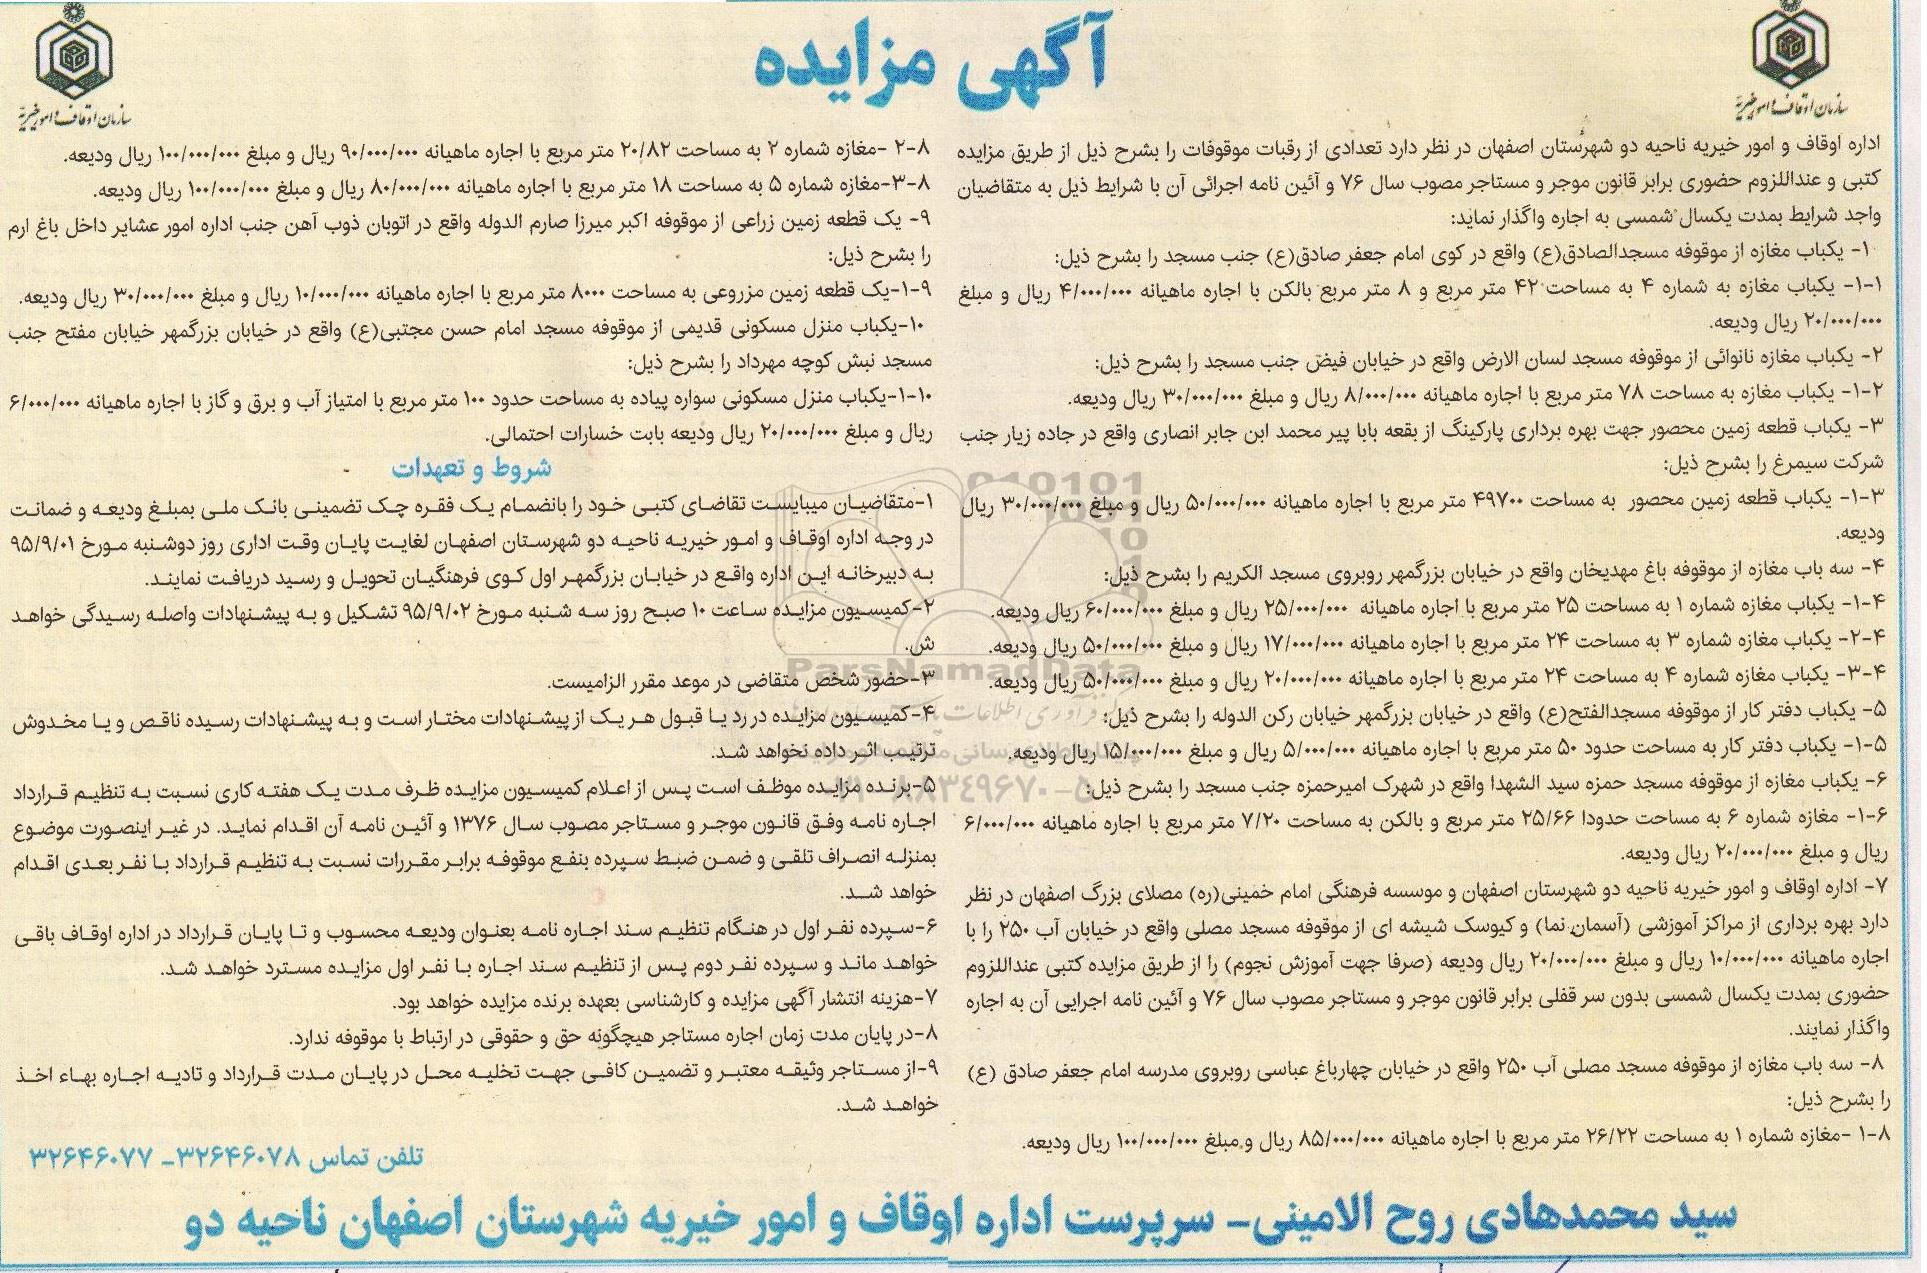 آگهی مزایده
سازمان اوقاف و امور خیریه
سازمان اوقاف و امور خیریه
اداره اوقاف و امور خیریه ناحیه دو شهرستان اصفهان در نظر دارد تعدادی از رقبات موقوفات را بشرح ذیل از طریق مزایده
کتبی و عنداللزوم حضوری برابر قانون موجر و مستاجر مصوب سال ۷۶ و آئین نامه اجرائی آن با شرایط ذیل به متقاضیان
واجد شرایط بمدت یکسال شمسی به اجاره واگذار نماید:
۱- یکباب مغازه از موقوفه مسجدالصادق(ع) واقع در کوی امام جعفر صادق(ع) جنب مسجد را بشرح ذیل:
۱-۱- یکباب مغازه به شماره ۴ به مساحت ۴۲ متر مربع و ۸ متر مربع بالکن با اجاره ماهیانه ۴/۰۰۰/۰۰۰ ریال و مبلغ
۲۰/۰۰۰/۰۰۰ ریال ودیعه.
۲- یکباب مغازه نانوائی از موقوفه مسجد لسان الارض واقع در خیابان فیض جنب مسجد را بشرح ذیل:
۱-۲- یکباب مغازه به مساحت ۷۸ متر مربع با اجاره ماهیانه ۸/۰۰۰/۰۰۰ ریال و مبلغ ۳۰/۰۰۰/۰۰۰ ریال ودیعه.
۳- یکباب قطعه زمین محصور جهت بهره برداری پارکینگ از بقعه بابا پیر محمد ابن جابر انصاری واقع در جاده زیار جنب
شرکت سیمرغ را بشرح ذیل:
۱-۳- یکباب قطعه زمین محصور به مساحت ۴۹۷۰۰ متر مربع با اجاره ماهیانه ۵۰/۰۰۰/۰۰۰ ریال و مبلغ ۳۰/۰۰۰/۰۰۰ ریال
ودیعه.
۴- سه باب مغازه از موقوفه باغ مهدیخان واقع در خیابان بزرگمهر روبروی مسجد الکریم را بشرح ذیل:
۱-۴- یکباب مغازه شماره ۱ به مساحت ۲۵ متر مربع با اجاره ماهیانه ۲۵/۰۰۰/۰۰۰ ریال و مبلغ ۶۰/۰۰۰/۰۰۰ ریال ودیعه.
۲-۴- یکباب مغازه شماره ۳ به مساحت ۲۴ متر مربع با اجاره ماهیانه ۱۷/۰۰۰/۰۰۰ ریال و مبلغ ۵۰/۰۰۰/۰۰۰ ریال ودیعه.
۳-۴- یکباب مغازه شماره ۴ به مساحت ۲۴ متر مربع با اجاره ماهیانه ۲۰/۰۰۰/۰۰۰ ریال و مبلغ ۵۰/۰۰۰/۰۰۰ ریال ودیعه.
۵- یکباب دفتر کار از موقوفه مسجدالفتح(ع) واقع در خیابان بزرگمهر خیابان رکن الدوله را بشرح ذیل:
۱-۵- یکباب دفتر کار به مساحت حدود ۵۰ متر مربع با اجاره ماهیانه ۵/۰۰۰/۰۰۰ ریال و مبلغ ۱۵/۰۰۰/۰۰۰ ریال ودیعه.
۶- یکباب مغازه از موقوفه مسجد حمزه سید الشهدا واقع در شهرک امیرحمزه جنب مسجد را بشرح ذیل:
۱-۶- مغازه شماره ۶ به مساحت حدودا ۲۵/۶۶ متر مربع و بالکن به مساحت ۷/۲۰ متر مربع با اجاره ماهیانه ۶/۰۰۰/۰۰۰
ریال و مبلغ ۲۰/۰۰۰/۰۰۰ ریال ودیعه.
۷- اداره اوقاف و امور خیریه ناحیه دو شهرستان اصفهان و موسسه فرهنگی امام خمینی(ره) مصلای بزرگ اصفهان در نظر
دارد بهره برداری از مراکز آموزشی (آسمان نما) و کیوسک شیشه ای از موقوفه مسجد مصلی واقع در خیابان آب ۲۵۰ را با
اجاره ماهیانه ۱۰/۰۰۰/۰۰۰ ریال و مبلغ ۲۰/۰۰۰/۰۰۰ ریال ودیعه (صرفا جهت آموزش نجوم) را از طریق مزایده کتبی عنداللزوم
حضوری بمدت یکسال شمسی بدون سر قفلی برابر قانون موجر و مستاجر مصوب سال ۷۶ و آئین نامه اجرایی آن به اجاره
واگذار نمایند.
۸- سه باب مغازه از موقوفه مسجد مصلی آب ۲۵۰ واقع در خیابان چهارباغ عباسی روبروی مدرسه امام جعفر صادق (ع)
را بشرح ذیل:
۱-۸ -مغازه شماره ۱ به مساحت ۲۶/۲۲ متر مربع با اجاره ماهیانه ۸۵/۰۰۰/۰۰۰ ریال و مبلغ ۱۰۰/۰۰۰/۰۰۰ ریال ودیعه.
۲-۸ -مغازه شماره ۲ به مساحت ۲۰/۸۲ متر مربع با اجاره ماهیانه ۹۰/۰۰۰/۰۰۰ ریال و مبلغ ۱۰۰/۰۰۰/۰۰۰ ریال ودیعه.
۳-۸-مغازه شماره ۵ به مساحت ۱۸ متر مربع با اجاره ماهیانه ۸۰/۰۰۰/۰۰۰ ریال و مبلغ ۱۰۰/۰۰۰/۰۰۰ ریال ودیعه.
۹- یک قطعه زمین زراعی از موقوفه اکبر میرزا صارم الدوله واقع در اتوبان ذوب آهن جنب اداره امور عشایر داخل باغ ارم
را بشرح ذیل:
۱-۹-یک قطعه زمین مزروعی به مساحت ۸۰۰۰ متر مربع با اجاره ماهیانه ۱۰/۰۰۰/۰۰۰ ریال و مبلغ ۳۰/۰۰۰/۰۰۰ ریال ودیعه.
۱۰-یکباب منزل مسکونی قدیمی از موقوفه مسجد امام حسن مجتبی(ع) واقع در خیابان بزرگمهر خیابان مفتح جنب
مسجد نبش کوچه مهرداد را بشرح ذیل:
۱-۱۰-یکباب منزل مسکونی سواره پیاده به مساحت حدود ۱۰۰ متر مربع با امتیاز آب و برق و گاز با اجاره ماهیانه ۶/۰۰۰/۰۰۰
ریال و مبلغ ۲۰/۰۰۰/۰۰۰ ریال ودیعه بابت خسارات احتمالی.
شروط و تعهدات
۱-متقاضیان میبایست تقاضای کتبی خود را بانضمام یک فقره چک تضمینی بانک ملی بمبلغ ودیعه و ضمانت
در وجه اداره اوقاف و امور خیریه ناحیه دو شهرستان اصفهان لغایت پایان وقت اداری روز دوشنبه مورخ ۹۵/۹/۰۱
به دبیرخانه این اداره واقع در خیابان بزرگمهر اول کوی فرهنگیان تحویل و رسید دریافت نمایند.
۲-کمیسیون مزایده ساعت ۱۰ صبح روز سه شنبه مورخ ۹۵/۹/۰۲ تشکیل و به پیشنهادات واصله رسیدگی خواهد
ش.
۳-حضور شخص متقاضی در موعد مقرر الزامیست.
۴-کمیسیون مزایده در رد یا قبول هر یک از پیشنهادات مختار است و به پیشنهادات رسیده ناقص و یا مخدوش
ترتیب اثر داده نخواهد شد.
۵-برنده مزایده موظف است پس از اعلام کمیسیون مزایده ظرف مدت یک هفته کاری نسبت به تنظیم قرارداد
اجاره نامه وفق قانون موجر و مستاجر مصوب سال ۱۳۷۶ و آئین نامه آن اقدام نماید. در غیر اینصورت موضوع
بمنزله انصراف تلقی و ضمن ضبط سپرده بنفع موقوفه برابر مقررات نسبت به تنظیم قرارداد با نفر بعدی اقدام
خواهد شد.
۶-سپرده نفر اول در هنگام تنظیم سند اجاره نامه بعنوان ودیعه محسوب و تا پایان قرارداد در اداره اوقاف باقی
خواهد ماند و سپرده نفر دوم پس از تنظیم سند اجاره با نفر اول مزایده مسترد خواهد شد.
۷-هزینه انتشار آگهی مزایده و کارشناسی بعهده برنده مزایده خواهد بود.
۸-در پایان مدت زمان اجاره مستاجر هیچگونه حق و حقوقی در ارتباط با موقوفه ندارد.
۹-از مستاجر وثیقه معتبر و تضمین کافی جهت تخلیه محل در پایان مدت قرارداد و تادیه اجاره بهاء اخذ
خواهد شد.
تلفن تماس ۳۲۶۴۶۰۷۸- ۳۲۶۴۶۰۷۷
سید محمدهادی روح الامینی- سرپرست اداره اوقاف و امور خیریه شهرستان اصفهان ناحیه دو
ParsNamadData